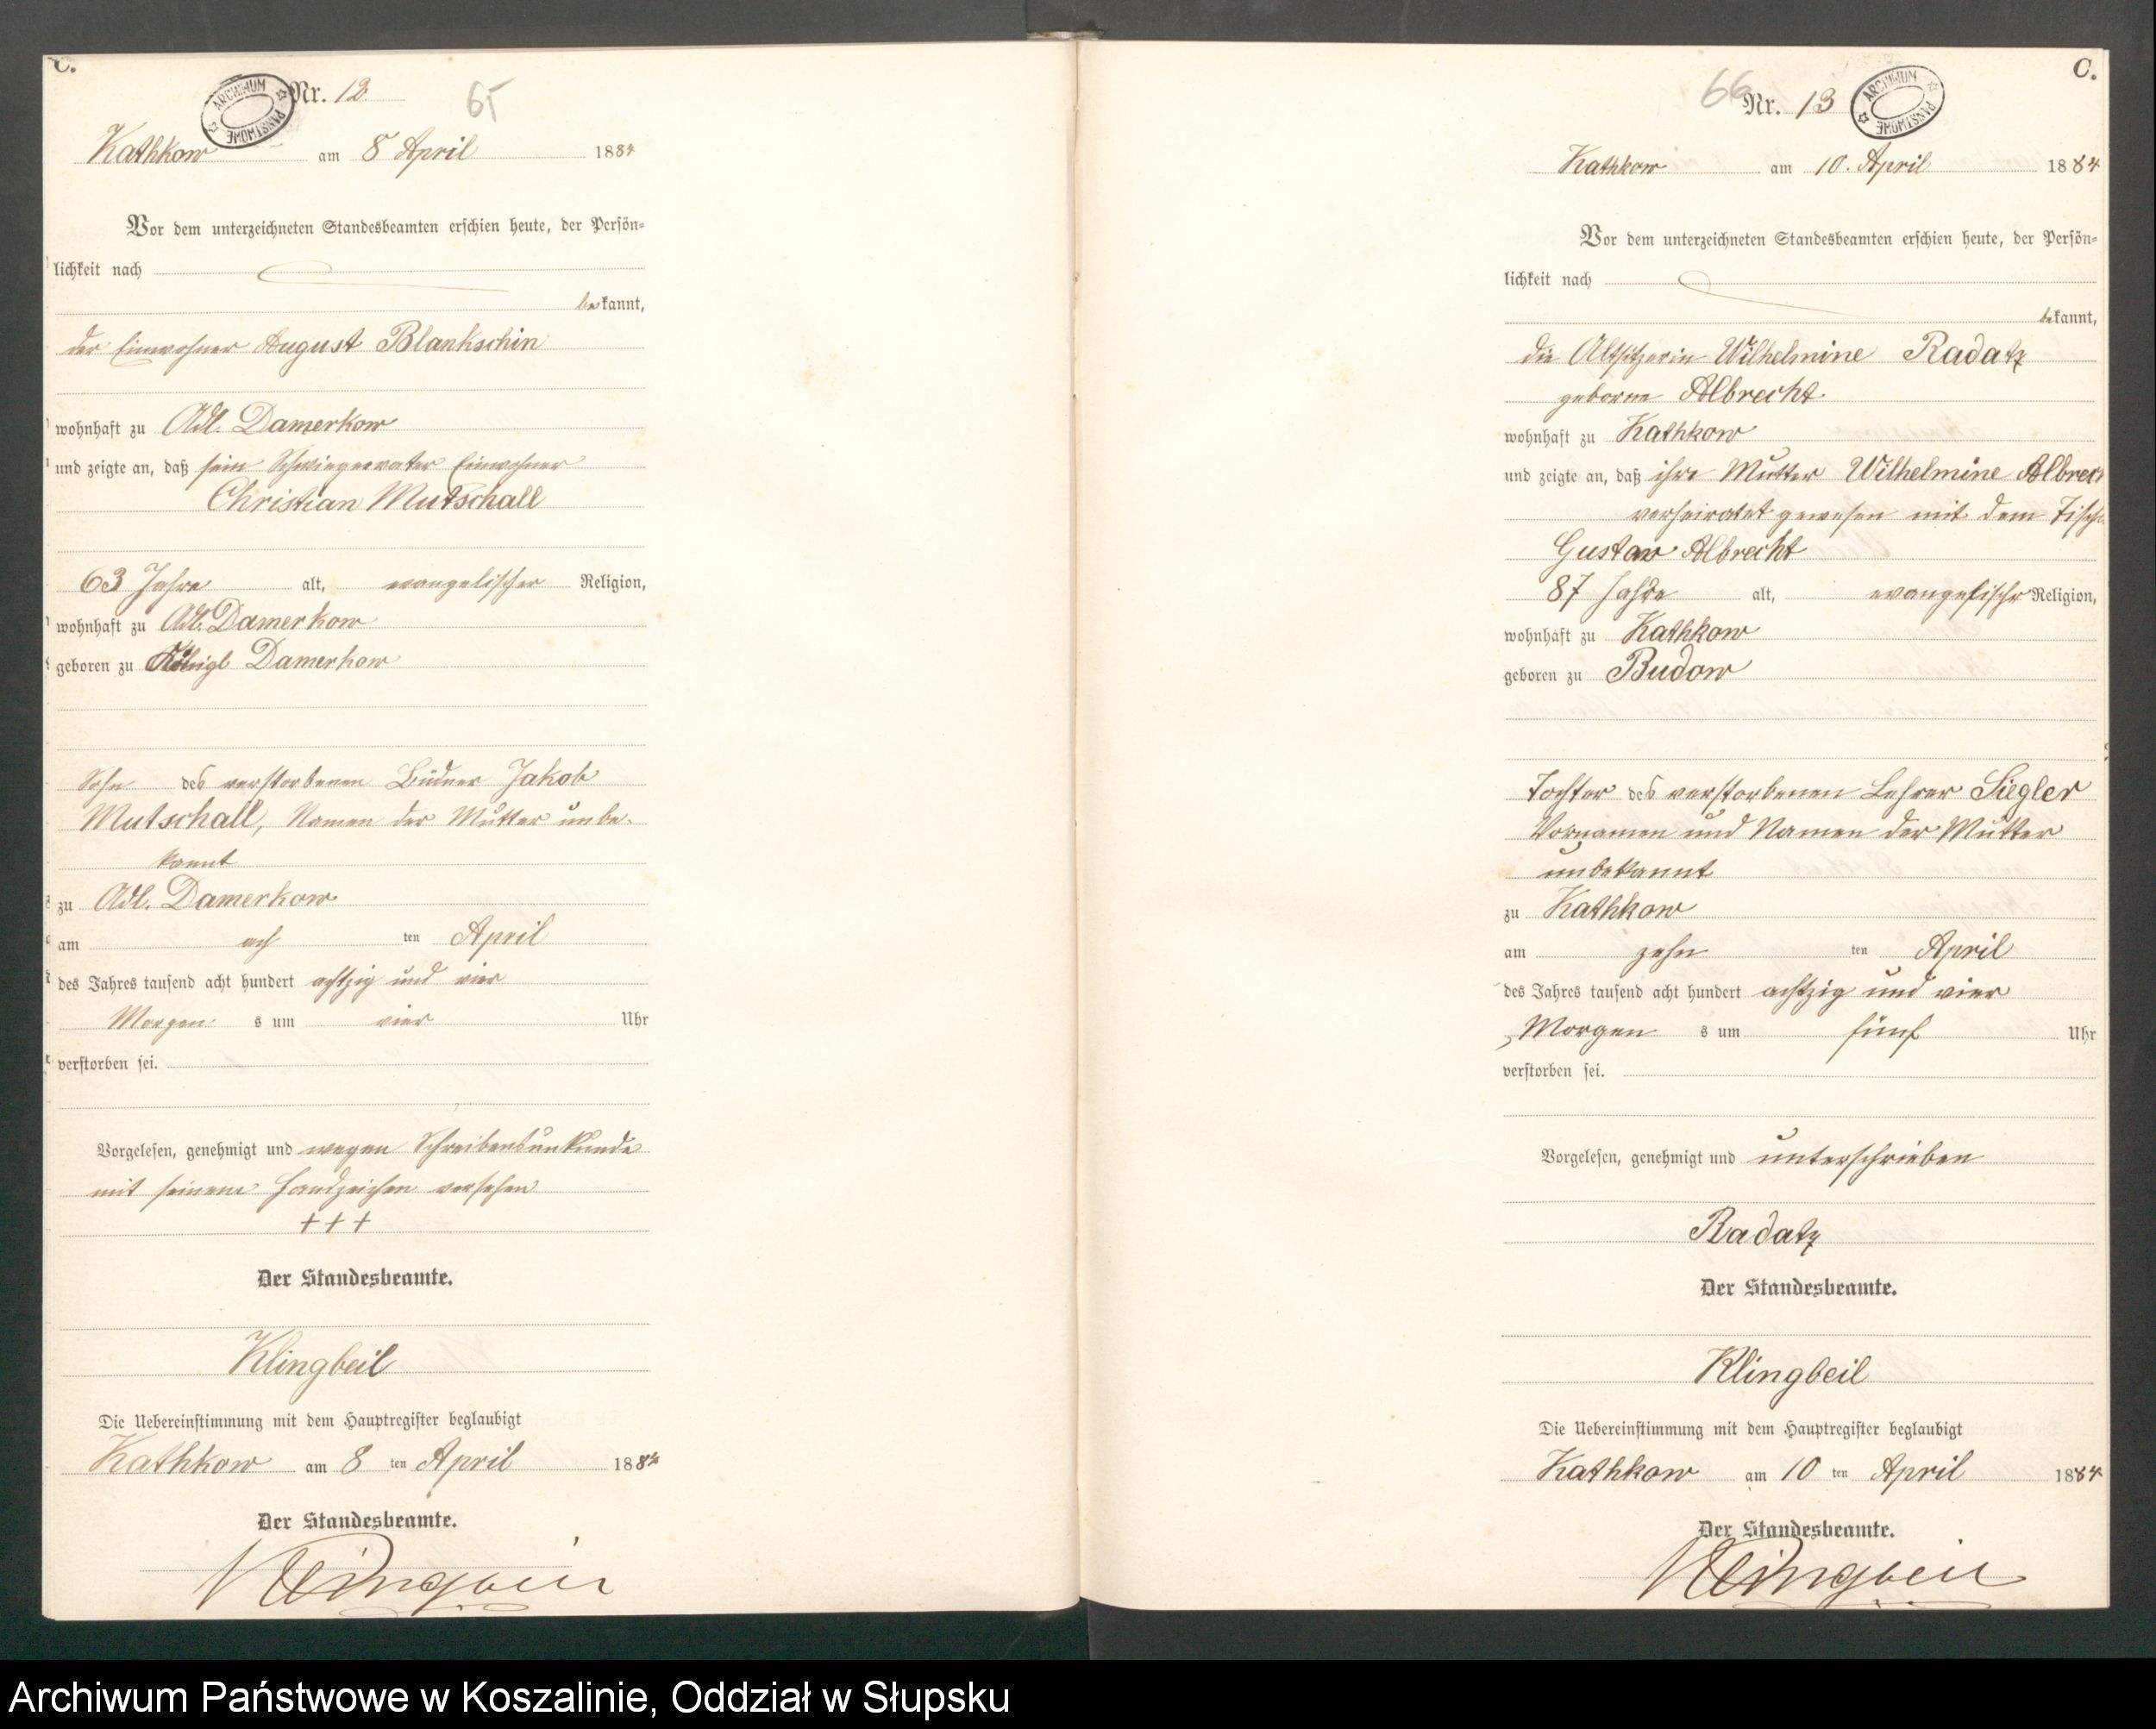 C.
Nr. 12.
65
Kathkow am 8 April 1884
Vor dem unterzeichneten Standesbeamten erschien heute, der Persön-
lichkeit nach
bekannt,
der Einwohner August Blankschin
wohnhaft zu Adl. Damerkow
und zeigte an, daß sein Schwiegervater Einwohner
Christian Mutschall
63 Jahre alt, evangelischer Religion,
wohnhaft zu Adl. Damerkow
geboren zu Königl Damerkow
Sohn des verstorbenen Büdner Jakob
Mutschall, Namen der Mutter unbe-
kannt
zu Adl. Damerkow
am ach ten April
des Jahres tausend acht hundert achtzig und vier
Morgen s um vier Uhr
verstorben sei.
Vorgelesen, genehmigt und wegen Schreibensunkunde
mit seinem Handzeichen versehen
+++
Der Standesbeamte.
Klingbeil
Die Uebereinstimmung mit dem Hauptregister beglaubigt
Kathkow am 8 ten April 1884
Der Standesbeamte.
Klingbeil
C.
66
Nr. 13
ARCHIWUM PAŃSTWOWE
Kathkow am 10. April 1884
Vor dem unterzeichneten Standesbeamten erschien heute, der Persön-
lichkeit nach
bekannt,
die Altsitzerin Wilhelmine Radatz
geborne Albrecht
wohnhaft zu Kathkow
und zeigte an, daß ihre Mutter Wilhelmine Albrec
verheiratet gewesen mit dem Tisch
Gustav Albrecht
87 Jahre alt, evangelischer Religion,
wohnhaft zu Kathkow
geboren zu Budow
Tochter des verstorbenen Lehrer Siegler
Vornamen und Namen der Mutter
unbekannt
zu Kathkow
am zehn ten April
des Jahres tausend acht hundert achtzig und vier
Morgen s um fünf Uhr
verstorben sei.
Vorgelesen, genehmigt und unterschrieben
Radatz
Der Standesbeamte.
Klingbeil
Die Uebereinstimmung mit dem Hauptregister beglaubigt
Kathkow am 10 ten April 1884
Der Standesbeamte.
Klingbeil
Archiwum Państwowe w Koszalinie, Oddział w Słupsku